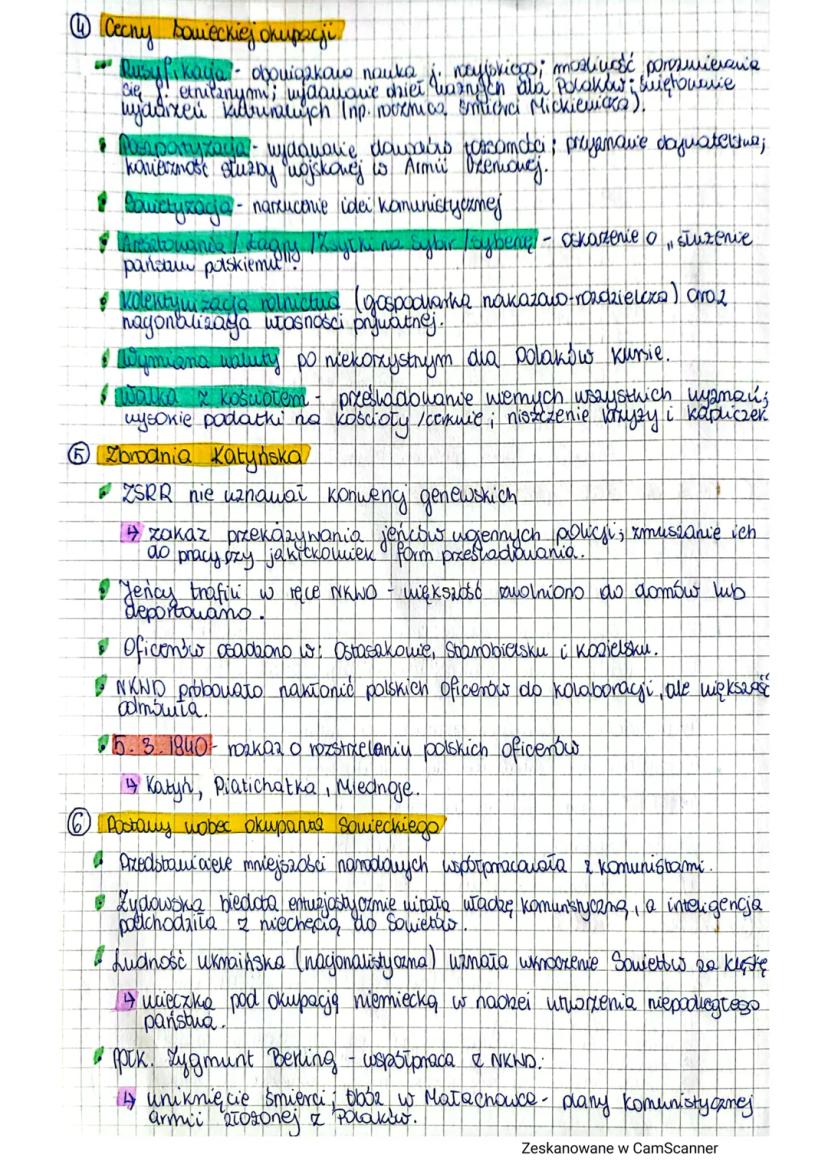 ④ Cechy sowieckiej okupacji
Rusyfikacja - obowiązkowa nauka j. rosyjskiego; możliwość porozumiewania
się j. etnicznymi; wydawanie dzieł ważnych dla Polaków; świętowanie
wydarzeń kulturalnych (np. rocznica śmierci Mickiewicza).
Paszportyzacja - wydawanie dowodów tożsamości; przyjmowanie obywatelstwa;
konieczność służby wojskowej w Armii Czerwonej.
Sowietyzacja - narzucenie idei komunistycznej
Aresztowania / Łagry / Zsyłki na Sybir / Syberię - oskarżenie o „służenie
państwu polskiemu".
Kolektywizacja rolnictwa (gospodarka nakazowo-rozdzielcza) oraz
nacjonalizacja własności prywatnej.
Wymiana waluty po niekorzystnym dla Polaków kursie.
Walka z kościołem - prześladowanie wiernych wszystkich wyznań;
wysokie podatki na kościoły / cerkwie; niszczenie krzyży i kapliczek
⑤ Zbrodnia Katyńska
ZSRR nie uznawał konwencji genewskich
↳ zakaz przekazywania jeńców wojennych policji; zmuszanie ich
do pracy czy jakichkolwiek form prześladowania.
Jeńcy trafili w ręce NKWD - większość zwolniono do domów lub
deportowano.
Oficerów osadzono w: Ostaszkowie, Starobielsku i Kozielsku.
NKWD próbowało nakłonić polskich oficerów do kolaboracji, ale większość
odmówiła.
5.3.1940 - rozkaz o rozstrzelaniu polskich oficerów
↳ Katyń, Piatichatka, Miednoje.
⑥ Postawy wobec okupanta sowieckiego
Przedstawiciele mniejszości narodowych współpracowała z komunistami.
Żydowska biedota entuzjastycznie witała władzę komunistyczną, a inteligencja
podchodziła z niechęcią do Sowietów.
Ludność ukraińska (nacjonalistyczna) uznała wkroczenie Sowietów za klęskę
↳ ucieczka pod okupację niemiecką w nadziei utworzenia niepodległego
państwa.
ppłk. Zygmunt Berling - współpraca z NKWD:
↳ uniknięcie śmierci; obóz w Małachowce - plany komunistycznej
armii złożonej z Polaków.
Zeskanowane w CamScanner